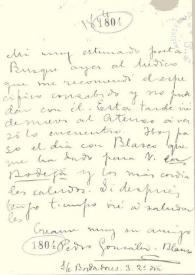 1804
Mi muy estimado poeta:
Busqué ayer al médico
que me recomendó el espe-
cífico consabido y no pude
dar con él. Esta tarde iré
de nuevo al Ateneo a ver
si lo encuentro. Hoy pa-
so el día con Blasco que
me ha dado para V. La
Bodega y los más cordia-
les saludos. Si después
tengo tiempo iré a saludar-
le.
Créame muy su amigo
1804 Pedro González-Blanco
S/c Bordadores. 3. 2º